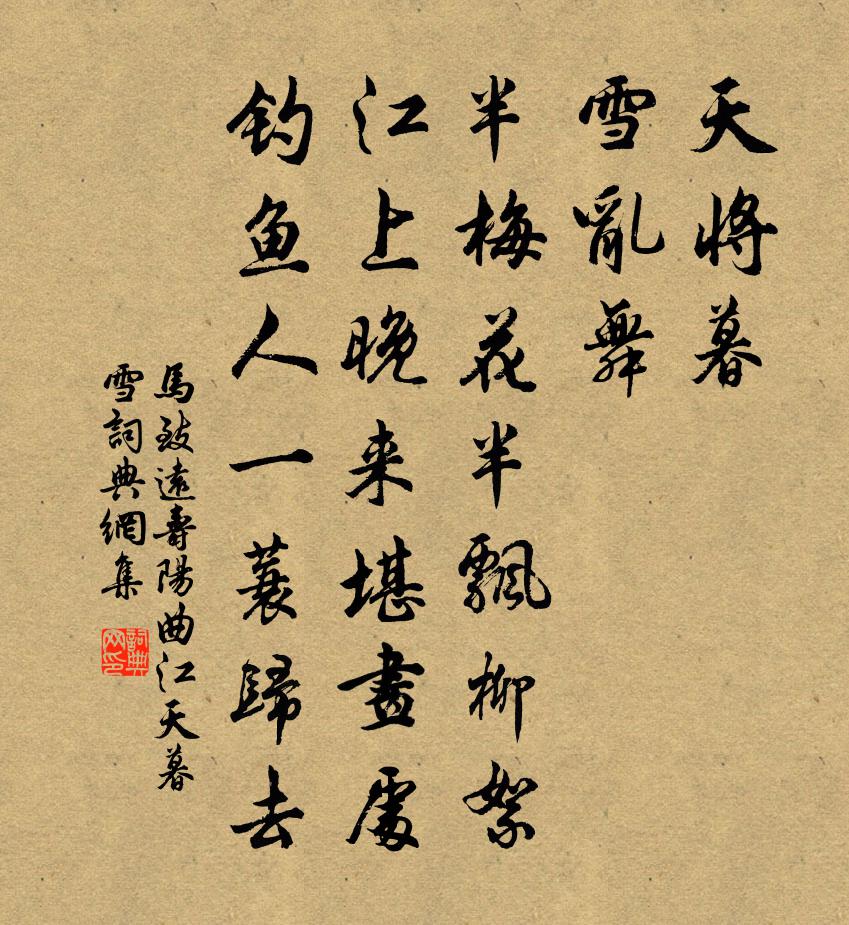 天將暮
雪亂舞
半梅花半飄柳絮
江上晚来堪畫處
钓鱼人一蓑歸去
馬致遠壽陽曲江天暮
雪詞典網集
詞典
网印